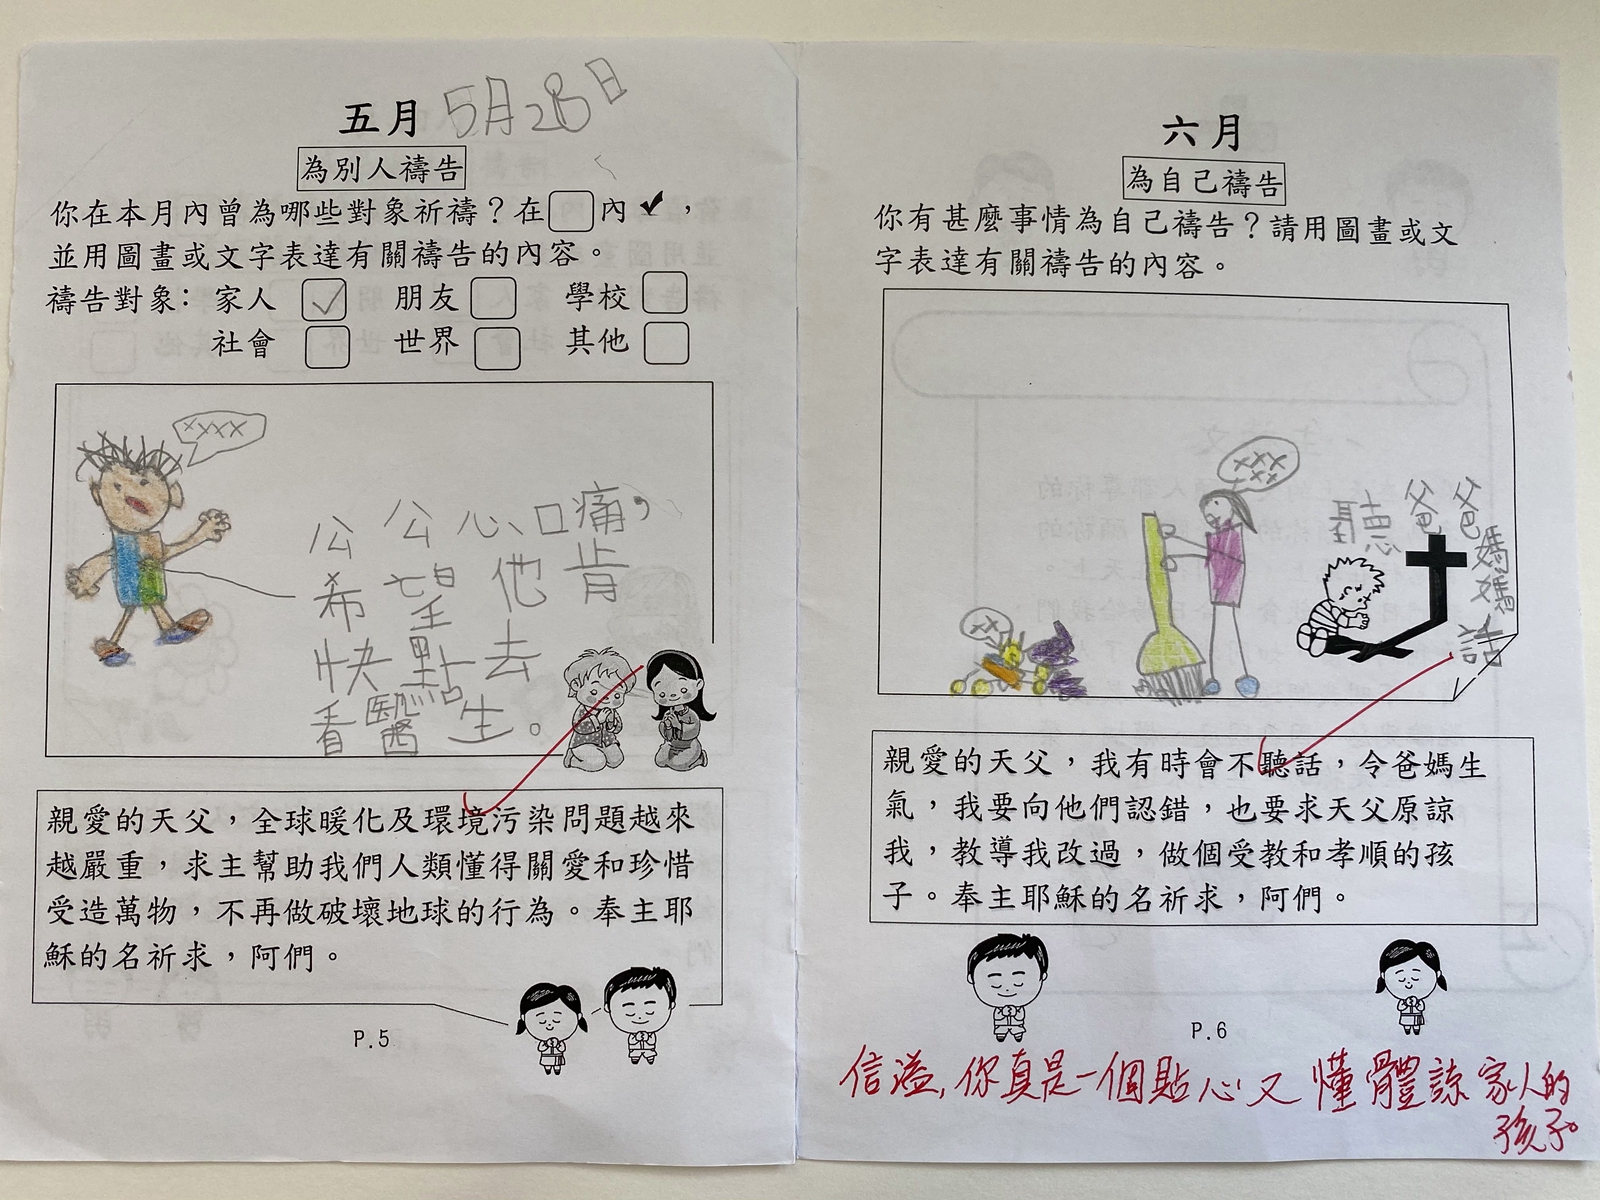 五月 5月28日
為別人禱告
你在本月內曾為哪些對象祈禱？在□內✔，
並用圖畫或文字表達有關禱告的內容。
禱告對象：家人 ☑ 朋友 □ 學校 □
社會 □ 世界 □ 其他 □
xxxx
公公心口痛，
希望他肯
快點去
看醫生。
親愛的天父，全球暖化及環境污染問題越來
越嚴重，求主幫助我們人類懂得關愛和珍惜
受造萬物，不再做破壞地球的行為。奉主耶
穌的名祈求，阿們。
P.5
六月
為自己禱告
你有甚麼事情為自己禱告？請用圖畫或文
字表達有關禱告的內容。
xxx
xx
xx
聽爸爸
媽
媽
話
親愛的天父，我有時會不聽話，令爸媽生
氣，我要向他們認錯，也要求天父原諒
我，教導我改過，做個受教和孝順的孩
子。奉主耶穌的名祈求，阿們。
P.6
信溢，你真是一個貼心又懂體諒家人的
孩子。